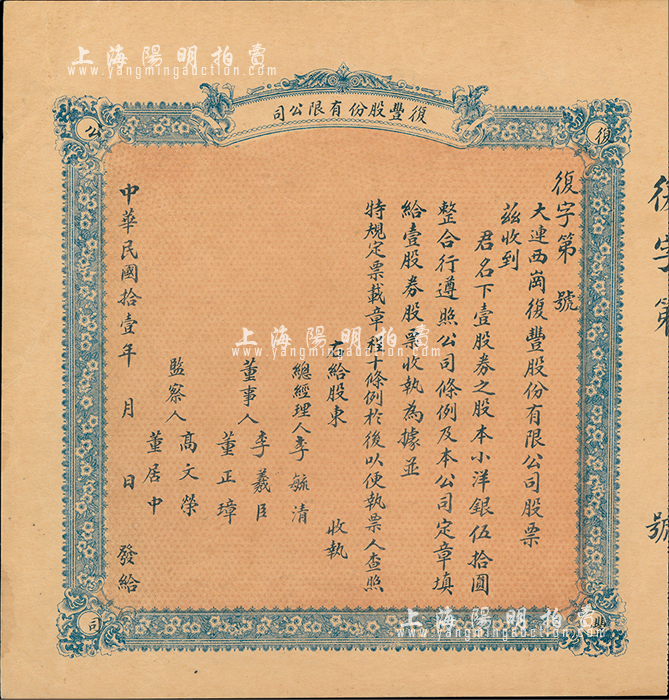 上海陽明拍賣
www.yangmingauction.com
復豐股份有限公司
復
豐
公
司
復字第 號
大連西崗復豐股份有限公司股票
茲收到
君名下壹股券之股本小洋銀伍拾圓
整合行遵照公司條例及本公司定章填
給壹股券股票收執為據並
特規定票載章程十條例於後以便執票人查照
右給股東 收執
總經理人李毓清
董事人 李義臣
董正璋
監察人 高文榮
董居中
中華民國拾壹年 月 日 發給
復字第 號
上海陽明拍賣
www.yangmingauction.com
上海陽明拍賣
www.yangmingauction.com